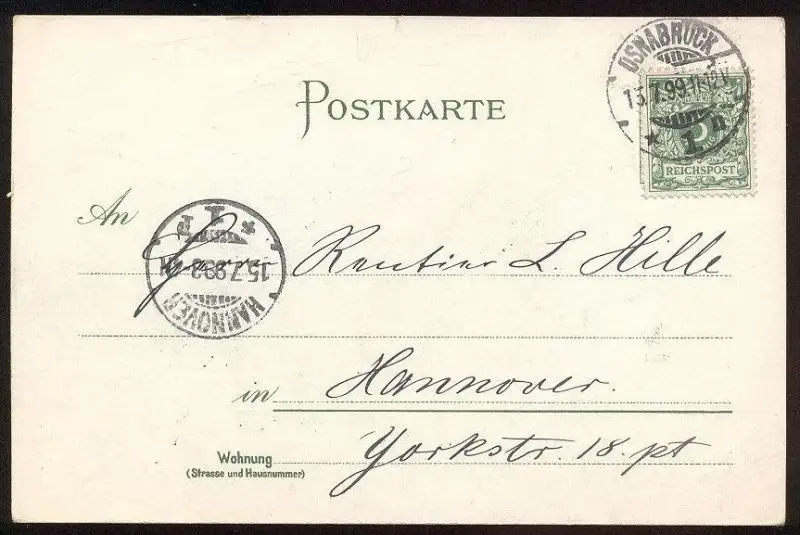 OSNABRÜCK
15.7.99.11-12V.
* 1.n
POSTKARTE
5
REICHSPOST
An
Herrn Rentier L. Hille
15.7.99
HANNOVER
in Hannover.
Yorkstr. 18. pt
Wohnung
(Strasse und Hausnummer)